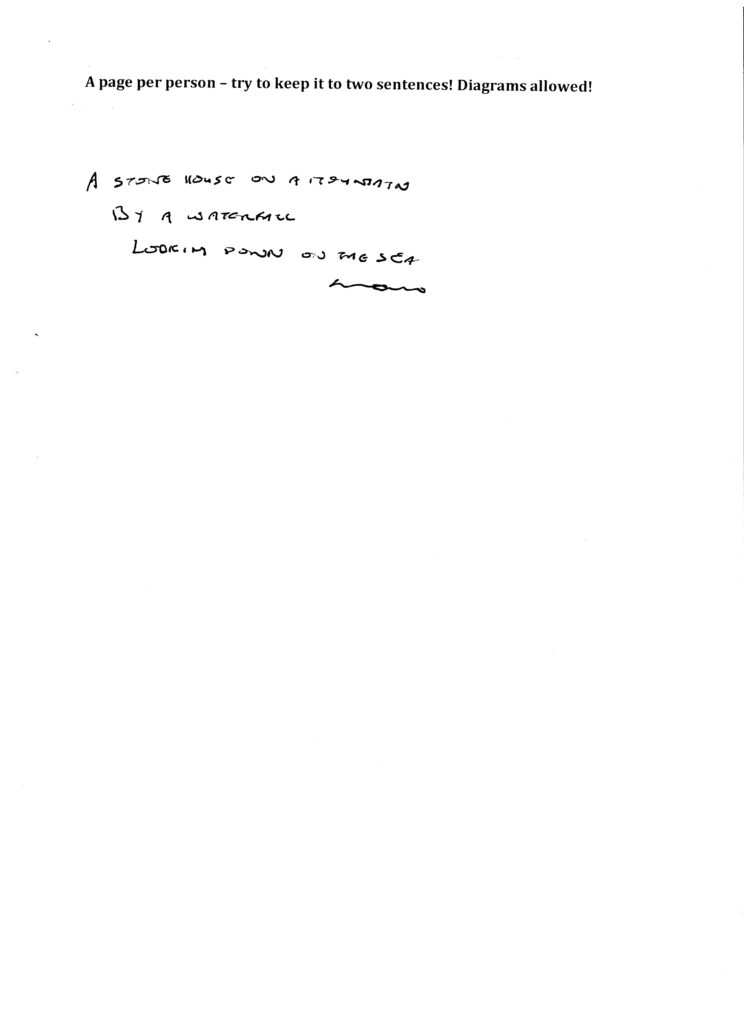 A page per person – try to keep it to two sentences! Diagrams allowed!
A STONE HOUSE ON A MOUNTAIN
BY A WATERFALL
LOOKIN DOWN ON THE SEA